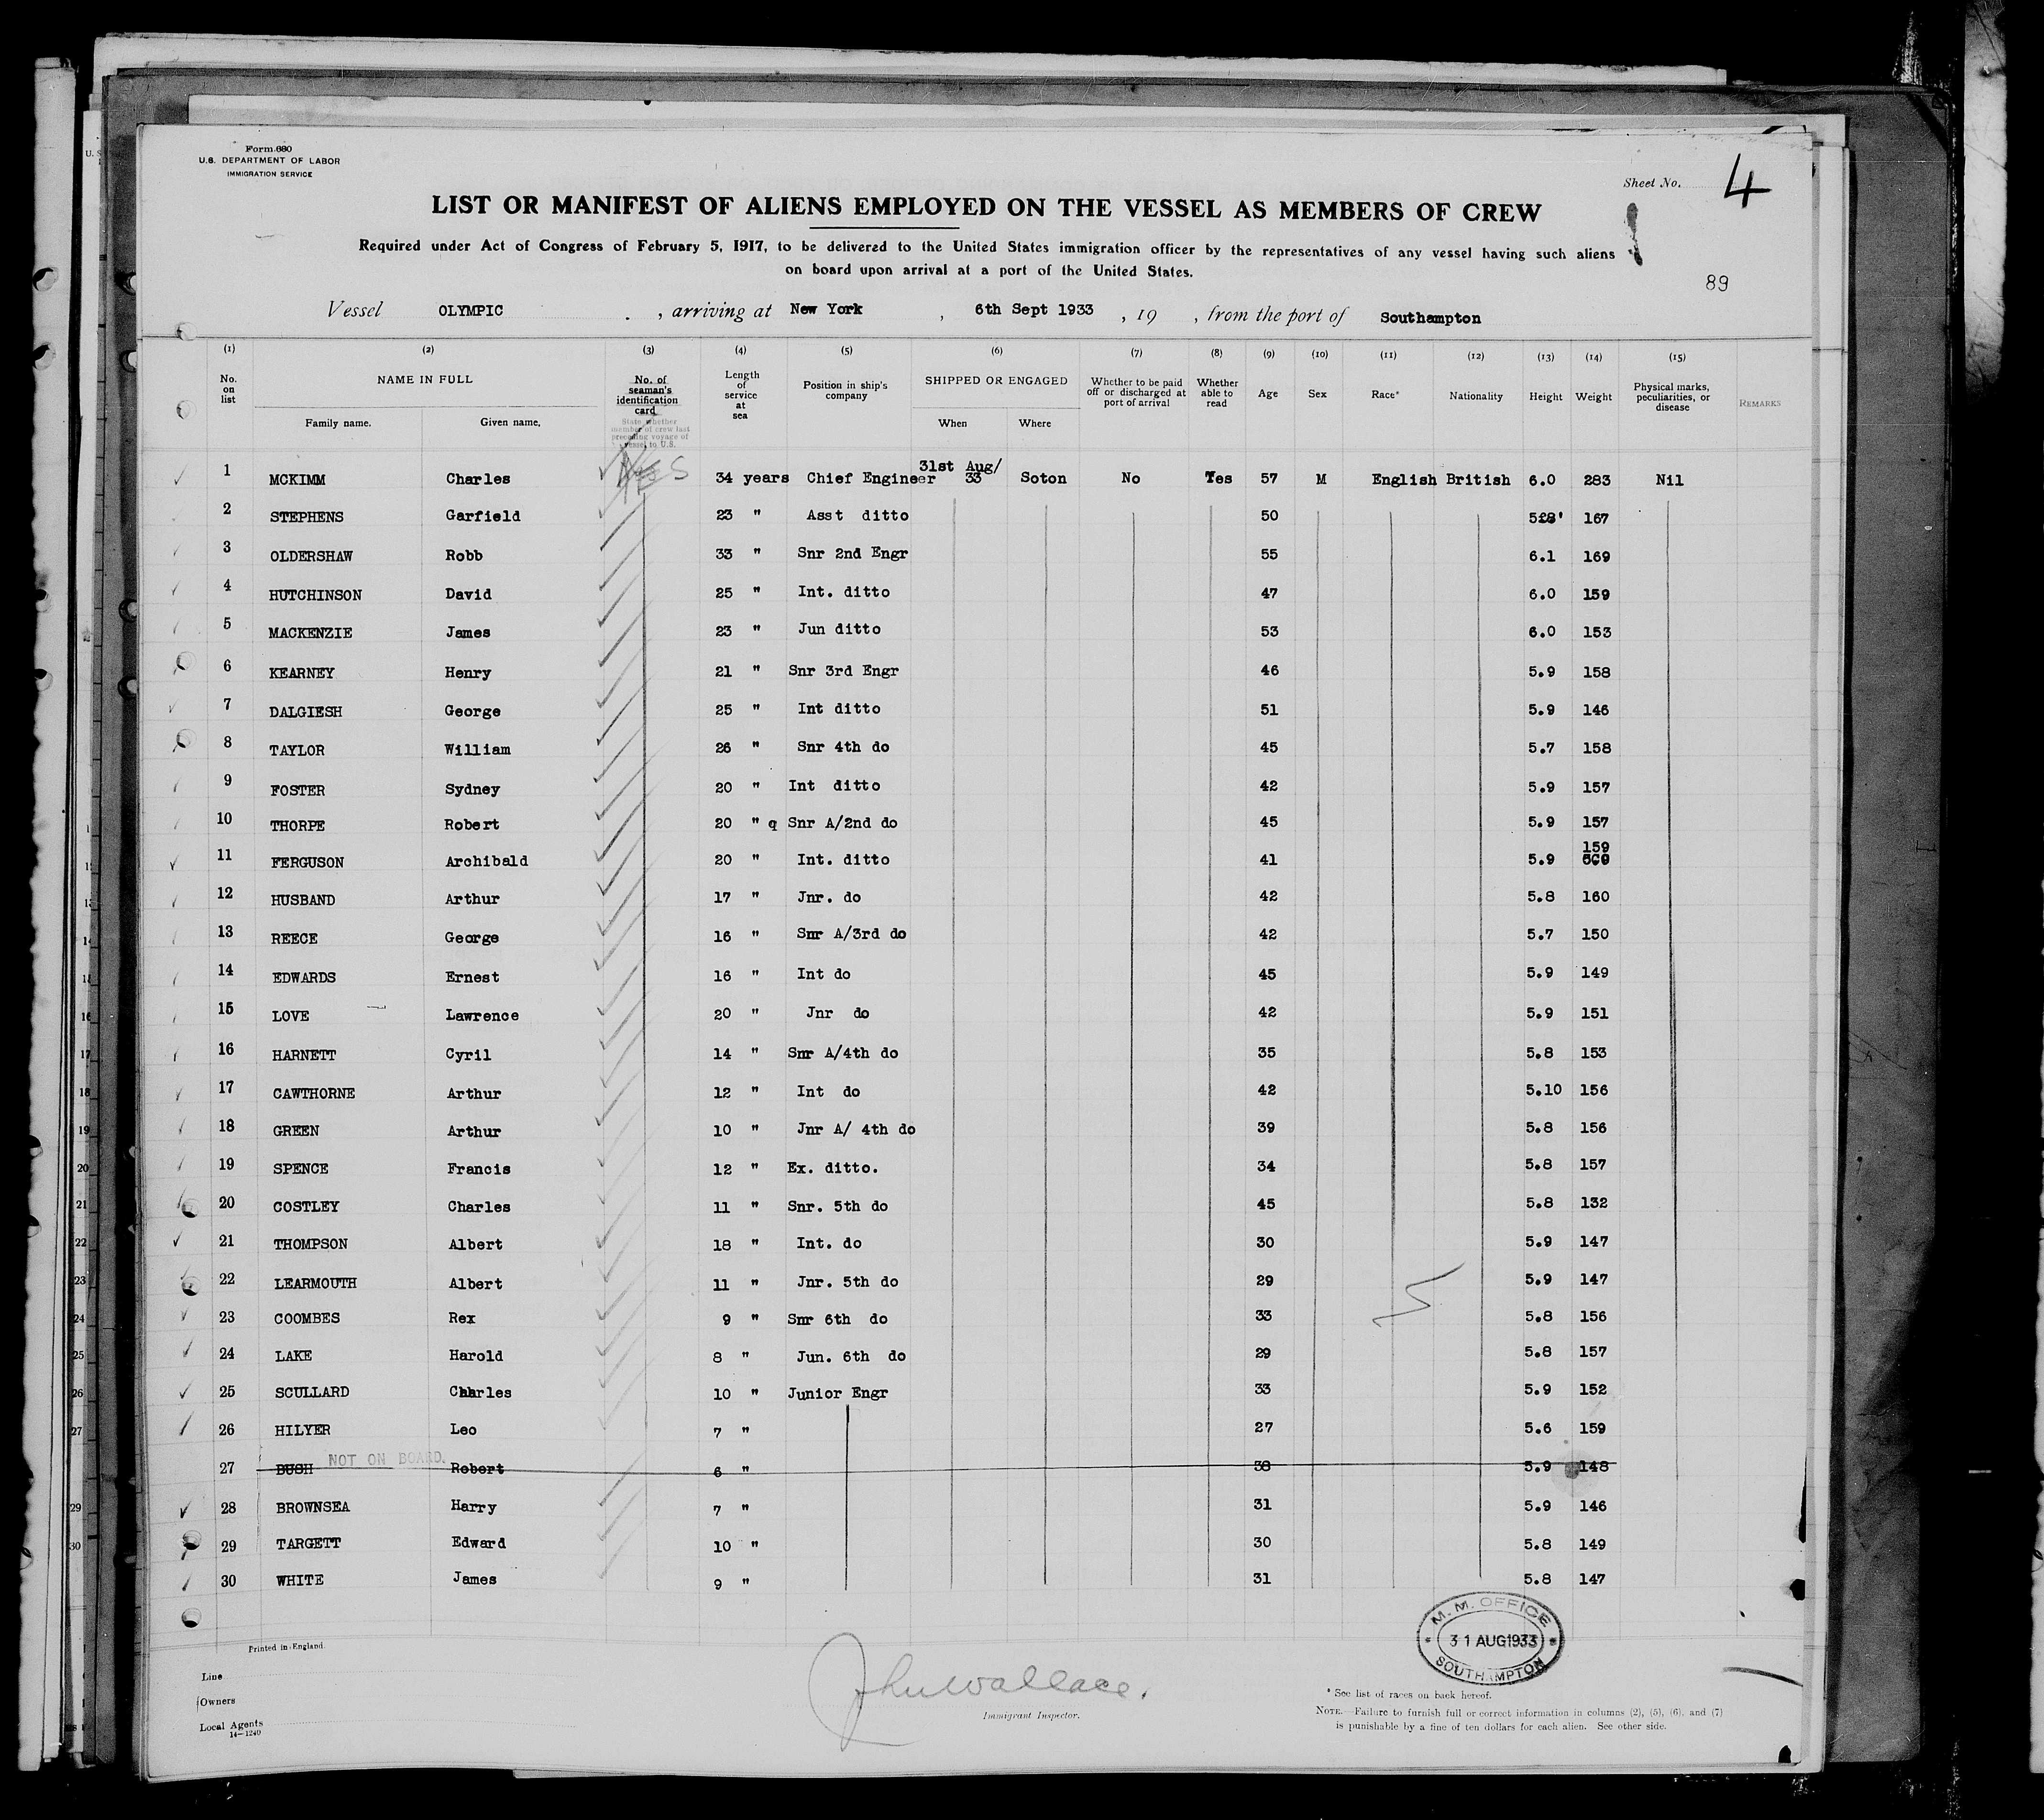 Form 680
U.S. DEPARTMENT OF LABOR
IMMIGRATION SERVICE
Sheet No. 4
LIST OR MANIFEST OF ALIENS EMPLOYED ON THE VESSEL AS MEMBERS OF CREW
Required under Act of Congress of February 5, 1917, to be delivered to the United States immigration officer by the representatives of any vessel having such aliens
on board upon arrival at a port of the United States.
89
Vessel OLYMPIC , arriving at New York , 6th Sept 1933 , 19 , from the port of Southampton
(1) (2) (3) (4) (5) (6) (7) (8) (9) (10) (11) (12) (13) (14) (15)
No. on list NAME IN FULL Family name. Given name. No. of seaman's identification card State whether member of crew last preceding voyage of vessel to U.S. Length of service at sea Position in ship's company SHIPPED OR ENGAGED When Where Whether to be paid off or discharged at port of arrival Whether able to read Age Sex Race* Nationality Height Weight Physical marks, peculiarities, or disease REMARKS
1 MCKIMM Charles 34 years Chief Engineer 31st Aug/33 Soton No Yes 57 M English British 6.0 283 Nil
2 STEPHENS Garfield 23 " Asst ditto 50 5£8' 167
3 OLDERSHAW Robb 33 " Snr 2nd Engr 55 6.1 169
4 HUTCHINSON David 25 " Int. ditto 47 6.0 159
5 MACKENZIE James 23 " Jun ditto 53 6.0 153
6 KEARNEY Henry 21 " Snr 3rd Engr 46 5.9 158
7 DALGIESH George 25 " Int ditto 51 5.9 146
8 TAYLOR William 26 " Snr 4th do 45 5.7 158
9 FOSTER Sydney 20 " Int ditto 42 5.9 157
10 THORPE Robert 20 " q Snr A/2nd do 45 5.9 157
11 FERGUSON Archibald 20 " Int. ditto 41 5.9 159
12 HUSBAND Arthur 17 " Jnr. do 42 5.8 160
13 REECE George 16 " Snr A/3rd do 42 5.7 150
14 EDWARDS Ernest 16 " Int do 45 5.9 149
15 LOVE Lawrence 20 " Jnr do 42 5.9 151
16 HARNETT Cyril 14 " Snr A/4th do 35 5.8 153
17 CAWTHORNE Arthur 12 " Int do 42 5.10 156
18 GREEN Arthur 10 " Jnr A/ 4th do 39 5.8 156
19 SPENCE Francis 12 " Ex. ditto. 34 5.8 157
20 COSTLEY Charles 11 " Snr. 5th do 45 5.8 132
21 THOMPSON Albert 18 " Int. do 30 5.9 147
22 LEARMOUTH Albert 11 " Jnr. 5th do 29 5.9 147
23 COOMBES Rex 9 " Snr 6th do 33 5.8 156
24 LAKE Harold 8 " Jun. 6th do 29 5.8 157
25 SCULLARD Charles 10 " Junior Engr 33 5.9 152
26 HILYER Leo 7 " 27 5.6 159
27 BUSH NOT ON BOARD. Robert 6 " 38 5.9 148
28 BROWNSEA Harry 7 " 31 5.9 146
29 TARGETT Edward 10 " 30 5.8 149
30 WHITE James 9 " 31 5.8 147
M. M. OFFICE
31 AUG 1933
SOUTHAMPTON
Printed in England
Line
Owners
Local Agents
14—1240
John Wallace.
Immigrant Inspector.
* See list of races on back hereof.
NOTE.—Failure to furnish full or correct information in columns (2), (5), (6), and (7)
is punishable by a fine of ten dollars for each alien. See other side.